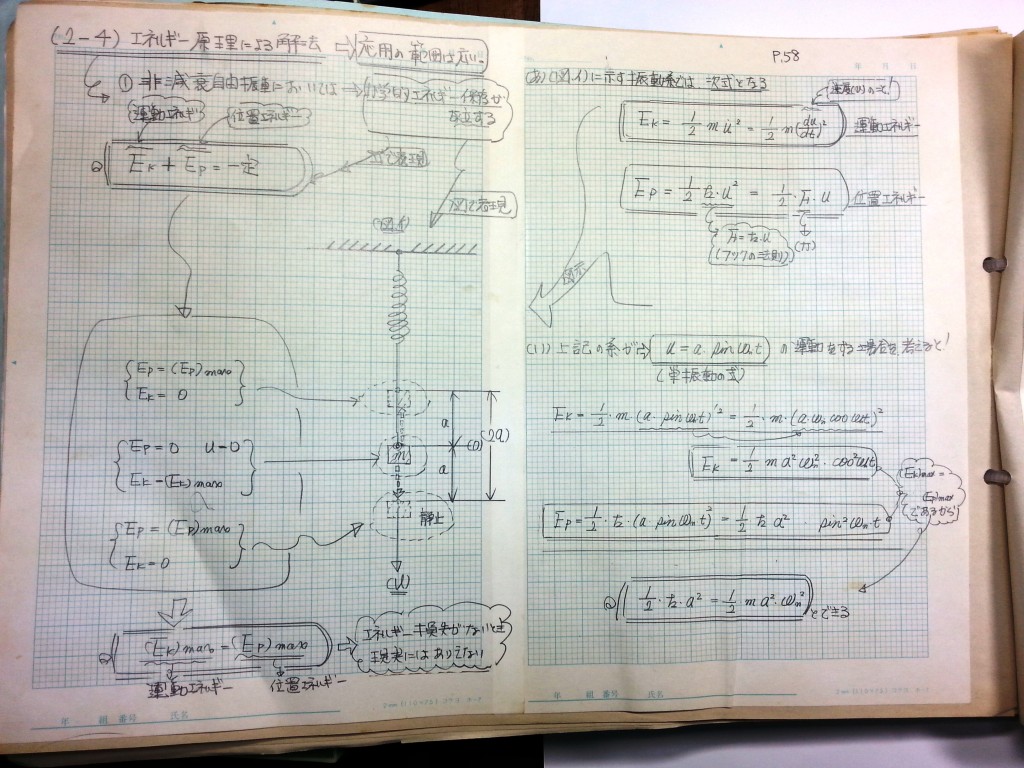 (2-4) エネルギー原理による解法 ⇨ 応用の範囲は広い
① 非減衰自由振動においては → 力学的エネルギー保存が
成立する
運動エネルギー 位置エネルギー
Ek + Ep = 一定
式で表現
図で表現
(図.イ)
Ep = (Ep)max
Ek = 0
Ep = 0 u = 0
Ek = (Ek)max
Ep = (Ep)max
Ek = 0
m
a
a
(2a)
静止
(u)
(Ek)max = (Ep)max
運動エネルギー 位置エネルギー
エネルギー損失がないとき
現実にはありえない
年 組 番号 氏名
P.58
年 月 日
(あ) (図.イ)に示す振動系では 次式となる
速度(u)の二乗!
Ek = 1/2 m u̇² = 1/2 m (du/dt)² 運動エネルギー
Ep = 1/2 k・u² = 1/2・F1・u 位置エネルギー
F1 = k・u
(フックの法則)
(力)
図示
(い) 上記の系が ⇨ u = a・sin ωnt の運動をする場合を考えると!
(単振動の式)
Ek = 1/2・m・(a・sin ωnt)'² = 1/2・m・(a・ωn cos ωnt)²
Ek = 1/2 m a² ωn²・cos² ωnt
(Ek)max =
(Ep)max
であるから
Ep = 1/2・k・(a sin ωn t)² = 1/2 k a²・sin² ωn・t
1/2・k・a² = 1/2 m a²・ωn² とできる
年 組 番号 氏名